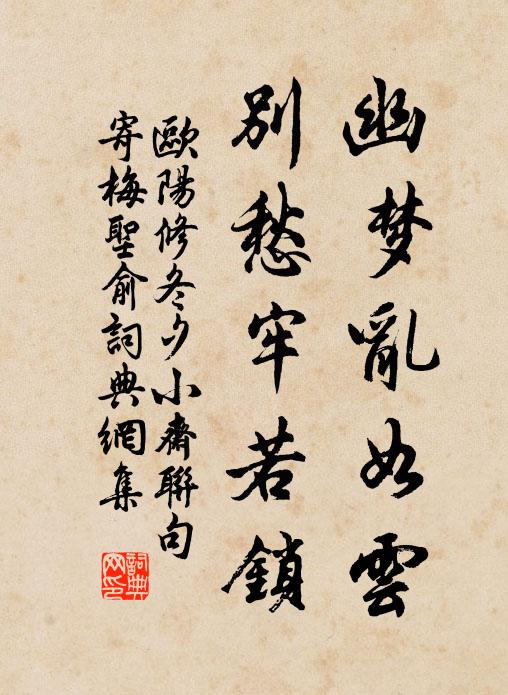 幽梦亂如雲
別愁牢若鎖
歐陽修冬夕小齋聯句
寄梅聖俞詞典網集
詞典
网印